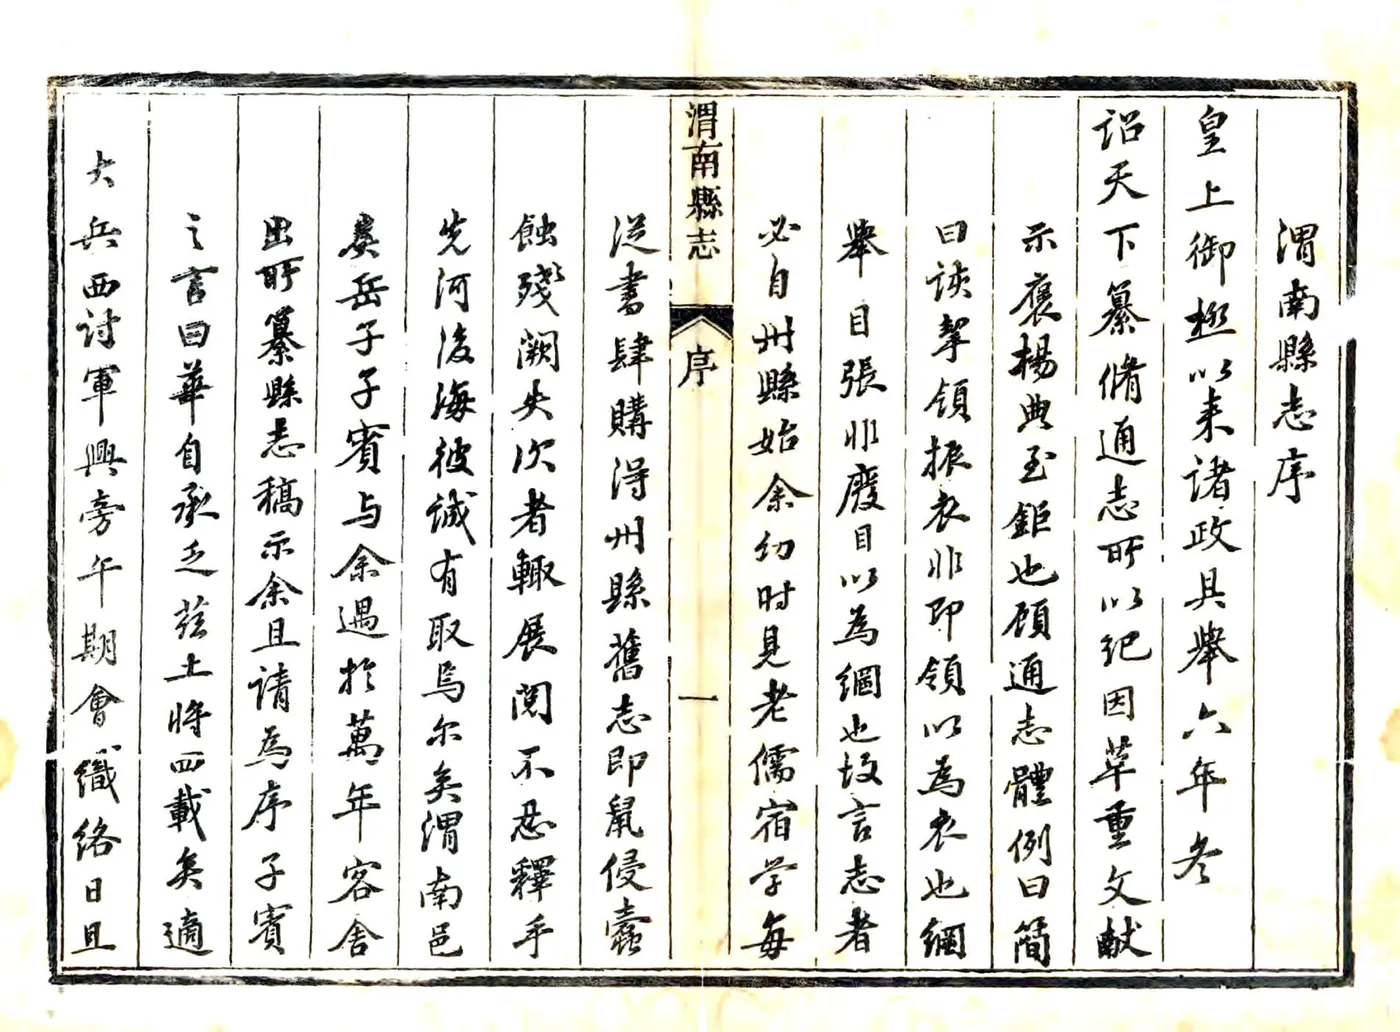 渭南縣志序
皇上御極以来諸政具舉六年冬
詔天下纂脩通志所以紀因革重文献
示褒揚典至鉅也顧通志體例曰簡
曰該挈領振衣非即領以為衣也綱
舉目張非廢目以為綱也故言志者
必自州縣始余幼时見老儒宿学每
渭南縣志
序
一
従書肆購得州縣舊志即鼠侵蠹
蝕殘闕失次者輙展閱不忍釋手
先河後海彼誠有取焉尔矣渭南邑
婁岳子子賓与余遇扵萬年客舍
出所纂縣志稿示余且請為序子賓
之言曰華自承乏茲土将四載矣適
大兵西討軍興旁午期會織絡日且